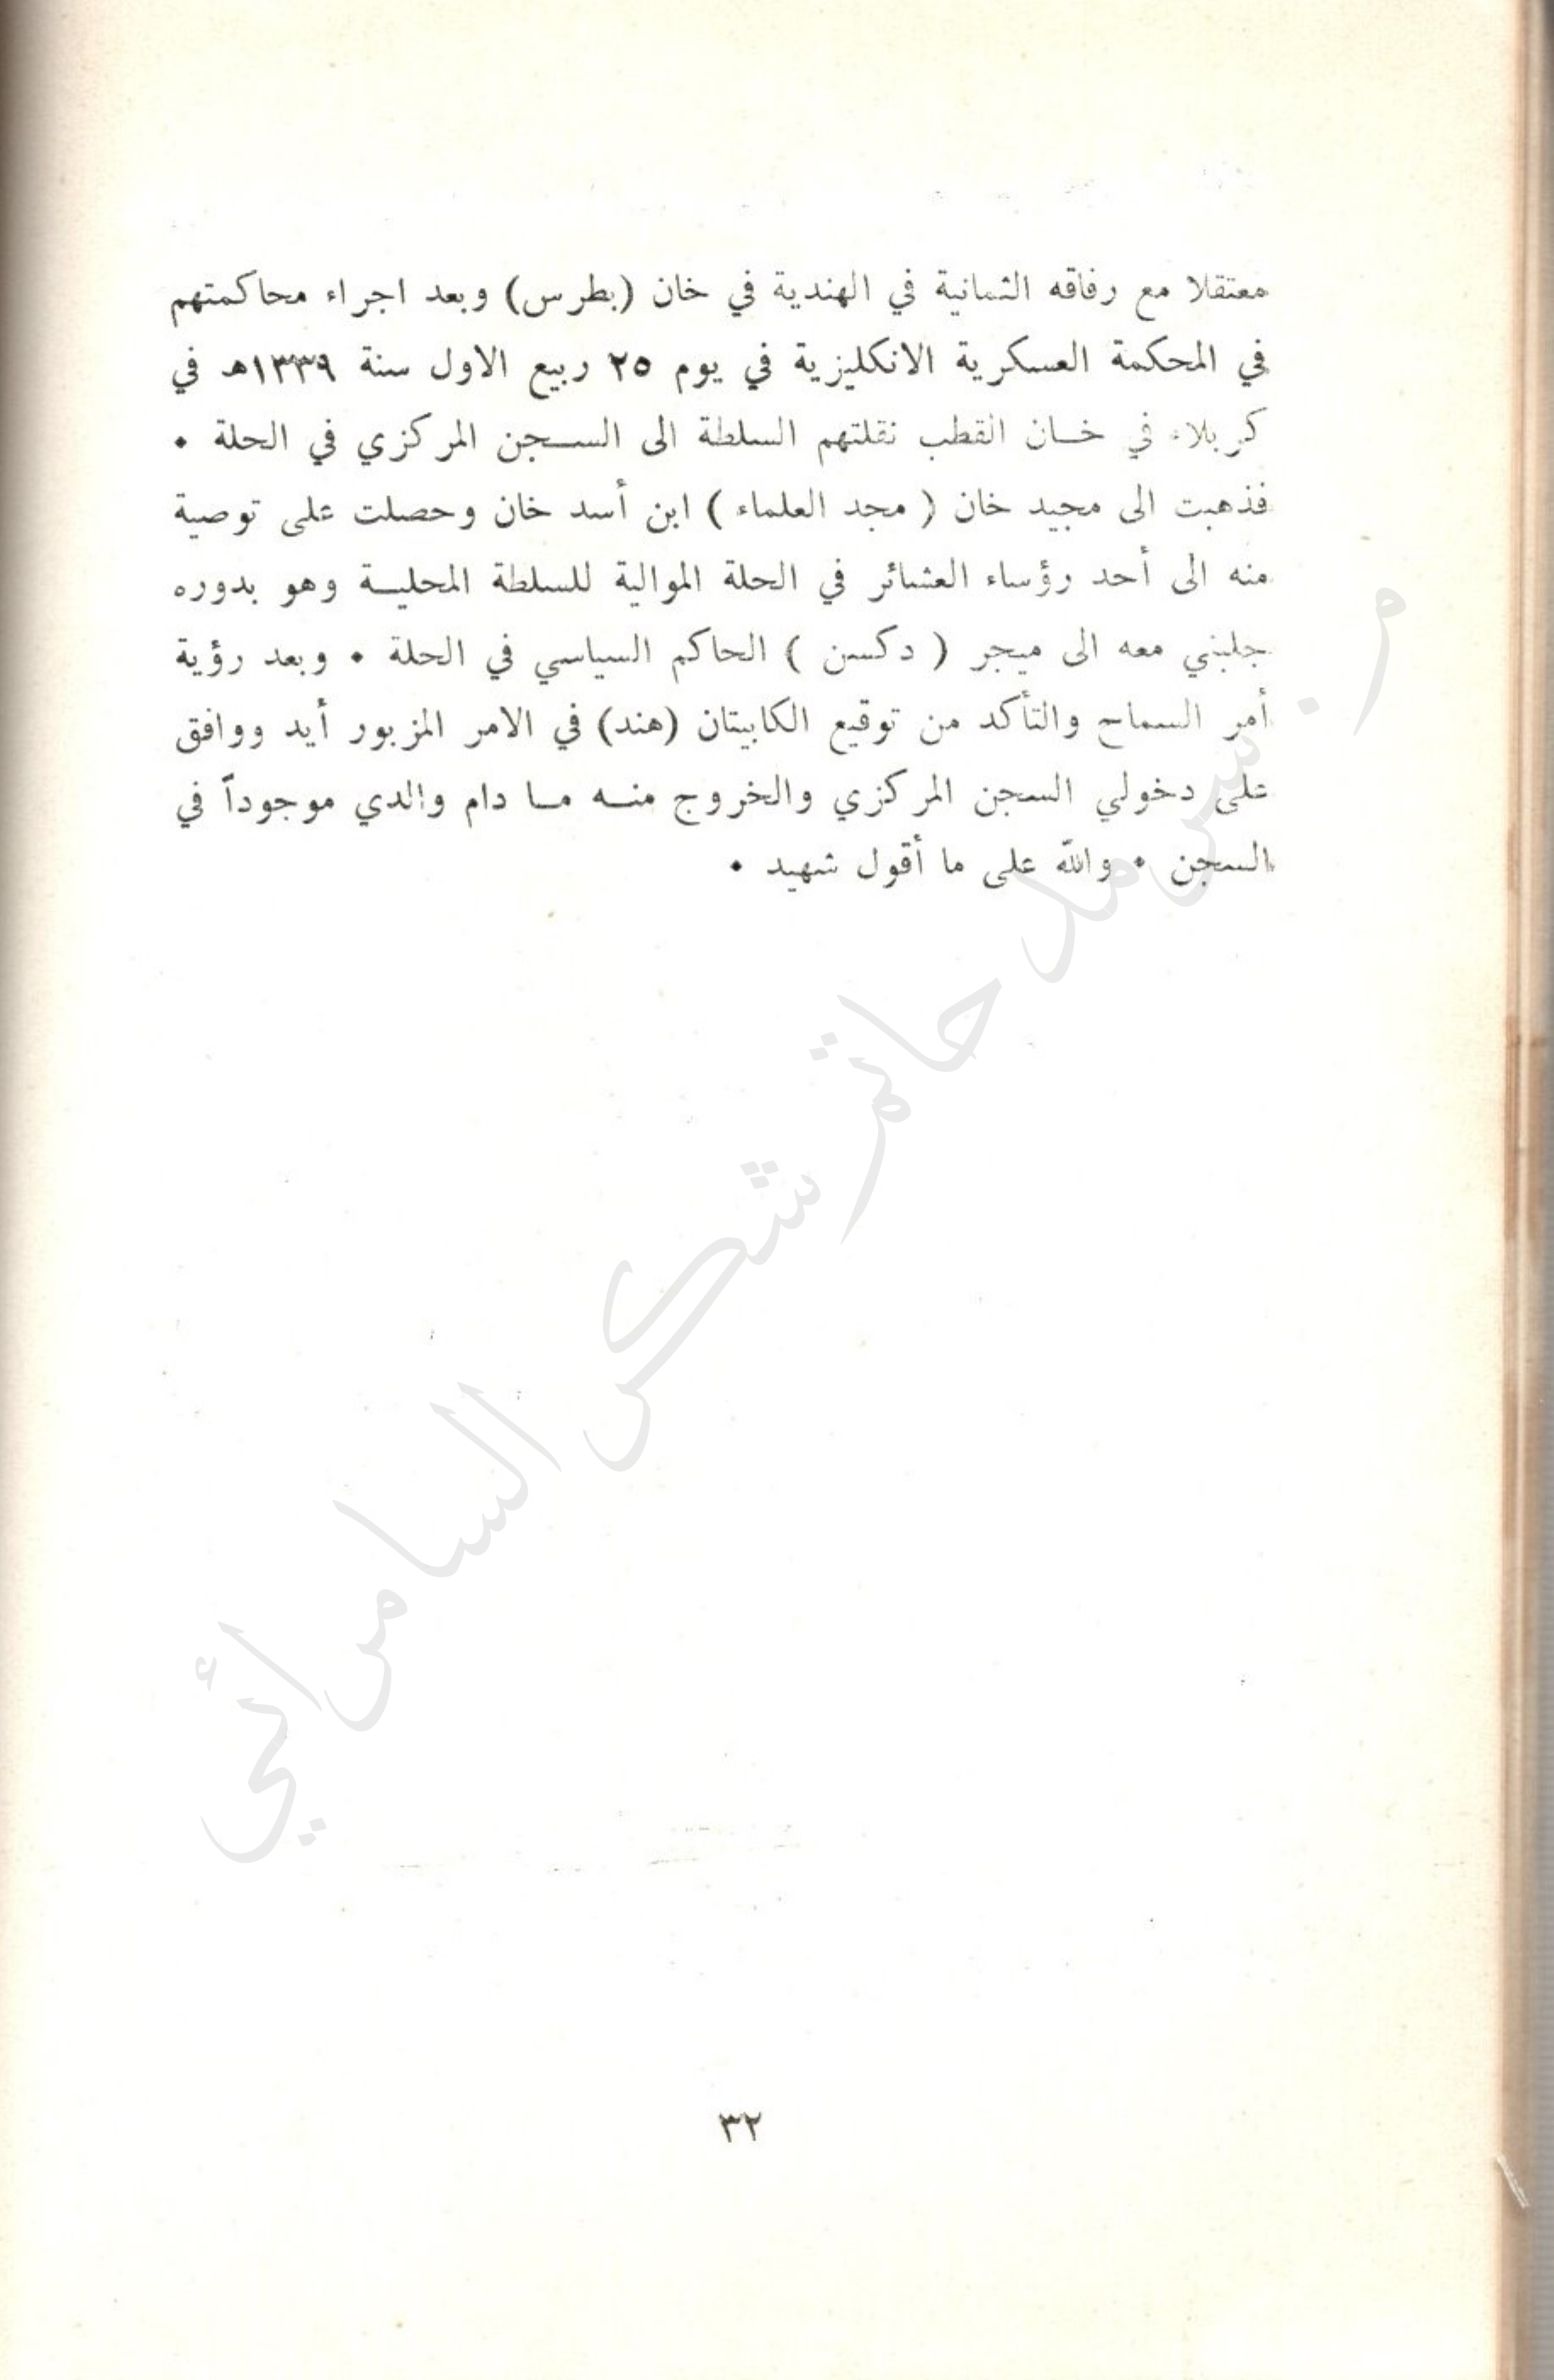 معتقلا مع رفاقه الثمانية في الهندية في خان (بطرس) وبعد اجراء محاكمتهم
في المحكمة العسكرية الانكليزية في يوم ٢٥ ربيع الاول سنة ١٣٣٩هـ في
كربلاء في خان القطب نقلتهم السلطة الى السجن المركزي في الحلة •
فذهبت الى مجيد خان ( مجد العلماء ) ابن أسد خان وحصلت على توصية
منه الى أحد رؤساء العشائر في الحلة الموالية للسلطة المحلية وهو بدوره
جلبني معه الى ميجر ( دكسن ) الحاكم السياسي في الحلة • وبعد رؤية
أمر السماح والتأكد من توقيع الكابيتان (هند) في الامر المزبور أيد ووافق
على دخولي السجن المركزي والخروج منه ما دام والدي موجوداً في
السجن • والله على ما أقول شهيد •
حاتم شكر السامرائي
٣٢